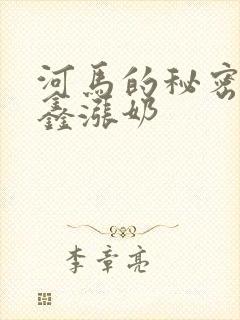 河马的秘密
鑫涨奶
李章亮